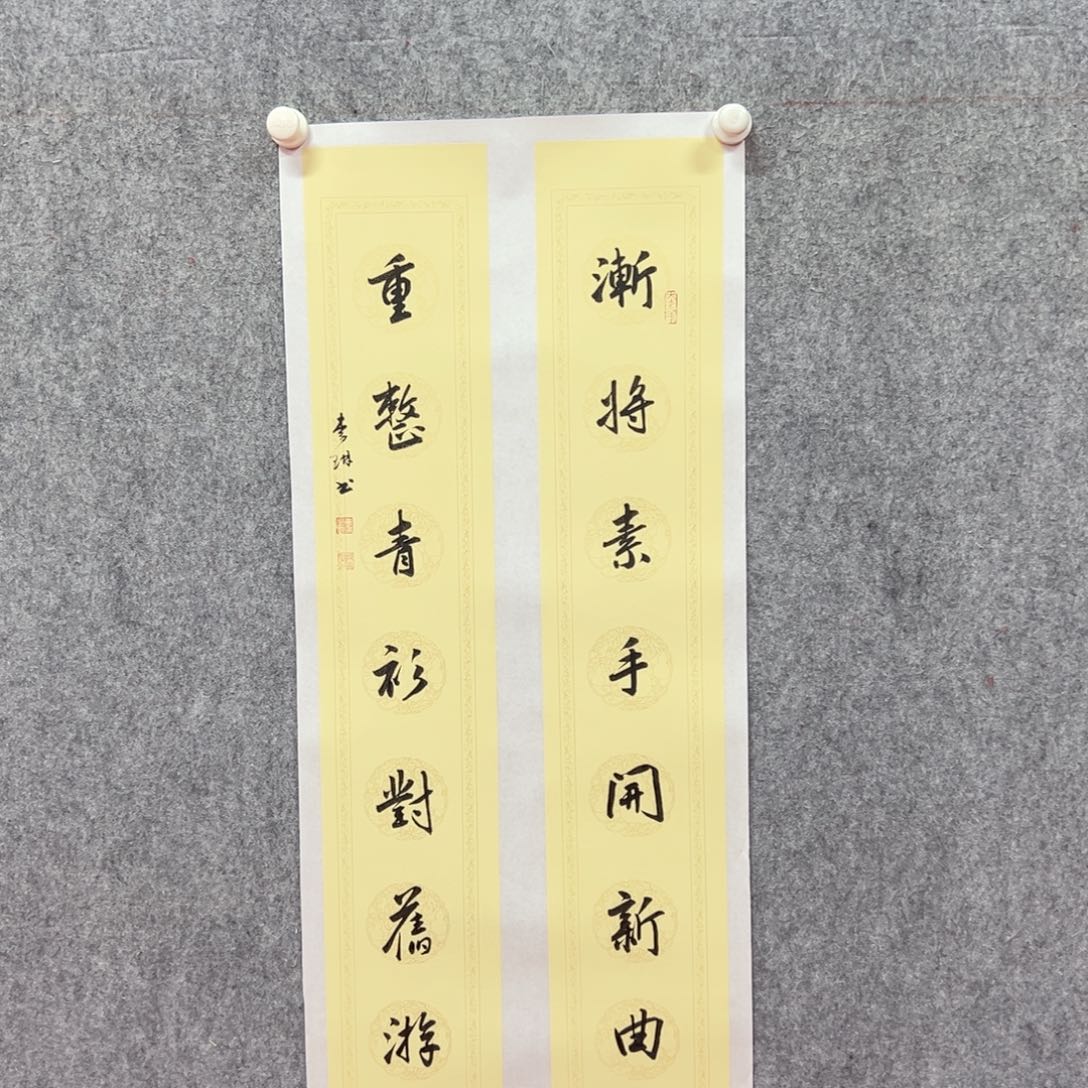 漸將素手開新曲
重整青衫對舊游
書